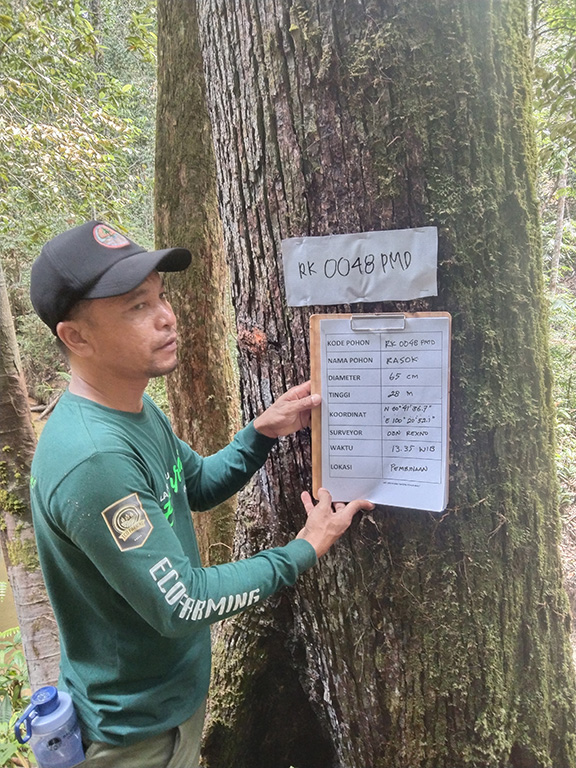 RK 0048 PMD
KODE POHON RK 0048 PMD
NAMA POHON RASOK
DIAMETER 65 cm
TINGGI 28 m
KOORDINAT N 00° 41' 56.7"
E 100° 20' 52.1"
SURVEYOR
WAKTU 13.35 WIB
LOKASI PEMBINAAN
ECO FARMING